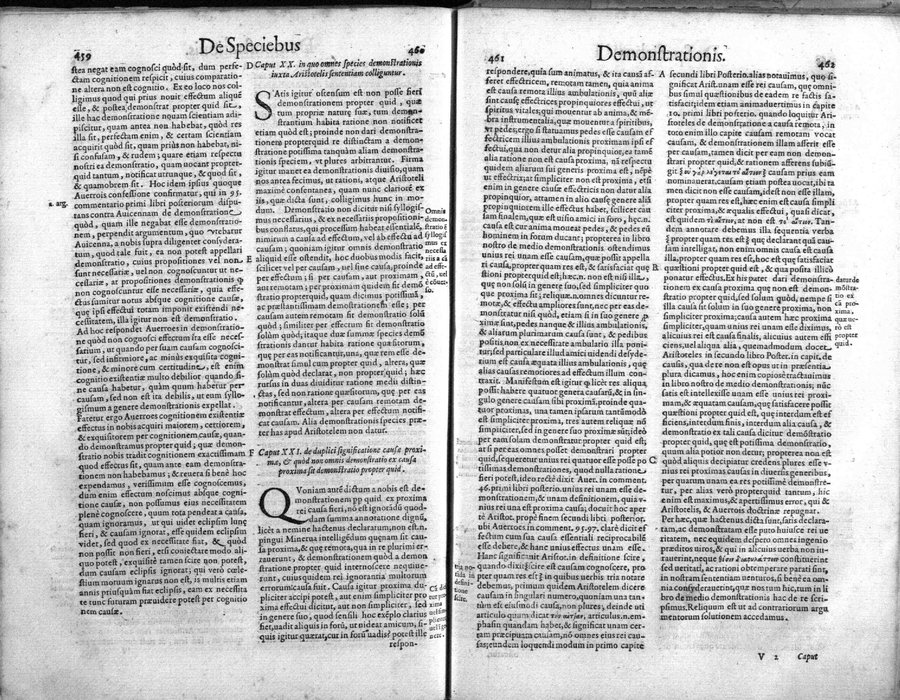 459
De Speciebus
460
stea negat eam cognosci quòd sit, dum perfe-
ctam cognitionem respicit, cuius comparatio-
ne altera non est cognitio. Ex eo loco nos col-
ligimus quod qui prius nouit effectum aliquē
esse, & postea demonstrat propter quid sit,
ille hac demonstratione nouam scientiam adi-
piscitur, quam antea non habebat, quòd res
illa sit, perfectam enim, & certam scientiam
acquirit quòd sit, quam priùs non habebat, ni-
si confusam, & rudem; quare etiam respectu
nostri ea demonstratio, quam uocant propter-
quid tantum, notificat utrunque, & quod sit,
& quamobrem sit. Hoc idem ipsius quoque
Auerrois confessione confirmatur, qui in 95.
commentario primi libri posteriorum dispu-
tans contra Auicennam de demonstratione
quòd, quam ille negabat esse demonstratio-
nem, perpendit argumentum, quo vtebatur
Auicenna, à nobis supra diligenter considera-
tum, quod tale fuit, ea non potest appellari
demonstratio, cuius propositiones vel non
sunt necessariæ, uel non cognoscuntur ut ne-
cessariæ, at propositiones demonstrationis ꝙ
non cognoscuntur esse necessariæ, quia effe-
ctus sumitur notus absque cognitione causæ,
quæ ipsi effectui totam imponit existendi ne-
cessitatem, illa igitur non est demonstratio.
Ad hoc respondet Auerroes in demonstratio-
ne quòd non cognosci effectum ita esse neces-
sarium, ut quando per suam causam cognosci-
tur, sed infirmiore, ac minùs exquisita cogni-
tione, & minore cum certitudine, est enim
cognitio existentiæ multo debilior quando si-
ne causa habetur, quàm quum habetur per
causam, sed non est ita debilis, ut eum syllo-
gismum a genere demonstrationis expellat.
Fatetur ergo Auerroes cognitionem existentiæ
effectus in nobis acquiri maiorem, certiorem,
& exquisitorem per cognitionem causæ, quan-
do demonstramus propter quid; quæ demon-
stratio nobis tradit cognitionem exactissimam
quod effectus sit, quam ante eam demonstra-
tionem non habebamus; & reuera si bene hoc
expendamus, verissimum esse cognoscemus,
dum enim effectum noscimus absque cogni-
tione causæ, non possumus eius necessitatem
plenè cognoscere, quum tota pendeat a causa,
quam ignoramus, ut qui uidet eclipsim lunę
fieri, & causam ignorat, esse quidem eclipsim
videt, sed quod ex necessitate fiat, & quòd
non possit non fieri, etsi coniectare modo ali-
quo potest, exquisitè tamen scire non potest,
dum causam eclipsis ignorat; qui verò cœle-
stium motuum ignarus non est, is multis etiam
annis priusquàm fiat eclipsis, eam ex necessita
te tunc futuram præuidere potest per cognitio
nem causæ.
2. arg.
D Caput XX. in quo omnes species demonstrationis
iuxta Aristotelis sententiam colliguntur.
SAtis igitur ostensum est non posse fieri
demonstrationem propter quid, quæ
sum propriæ naturę suæ, tum demon-
strantium habita ratione non notificet
etiam quòd est; proinde non dari demonstra-
tionem propterquid re distinctam a demon-
stratione potissima tanquàm aliam demonstra-
tionis speciem, vt plures arbitrantur. Firma
igitur manet ea demonstrationis diuisio, quam
nos antea fecimus, ut rationi, atque Aristoteli
maximè consentanea, quam nunc clariorē ex
iis, quæ dicta sunt, colligimus hunc in mo-
dum. Demonstratio uel dicitur nisi syllogis-
mus necessarius, & ex necessariis propositioni-
bus conflatus, qui processum habeat essentialē,
nimirum a causa ad effectum, vel ab effectu ad
E causam; quoniam igitur omnis demonstratio
aliquid esse ostendit, hoc duobus modis facit,
scilicet vel per causam, uel sine causa, proinde
per effectum; si per causam, aut proximam,
aut remotam; per proximam quidem fit demō
stratio propterquid, quam dicimus potissimā,
& præstantissimam demonstrationem esse; per
causam autem remotam fit demonstratio solū
quòd; similiter per effectum fit demonstratio
solùm quòd; itaque duæ summæ species demō
strationis dantur habita ratione quæsitorum,
quę per eas notificantur, una, quæ rem esse de-
monstrat simul cum propter quid, altera, quæ
solùm quòd declarat, non propter quid; hæc
rursus in duas diuiditur ratione medii distin-
ctas, sed non ratione quæsitorum, quę per eas
notificantur, altera per causam remotam de-
monstrat effectum, altera per effectum notifi-
cat causam. Alia demonstrationis species præ-
ter has apud Aristotelem non datur.
Omnis
demon-
stratio ē
syllogis-
mus ex
necessa
riis a cā
ad effe-
ctū, uel
e cōuer-
so.
F Caput XXI. de duplici significatione causæ proxi-
mæ, & quòd non omnis demonstratio ex causa
proxima sit demonstratio propter quid.
QVoniam autē dictum a nobis est de-
monstrationem ꝓp quid ex proxima
rei causa fieri, nō est ignorādū quod-
dam summa annotatione dignū,
licèt a nemine hactenus declaratum; non est. n.
pingui Minerua intelligēdum quęnam sit cau-
sa proxima, & quę remota, qua in re plurimi er-
rauerunt, & demonstrationem quòd a demon
stratione propter quid internoscere nequiue-
runt, cuius quidem rei ignorantia multorum
errorum causa fuit. Causa igitur proxima du-
pliciter accipi potest, aut enim simpliciter pro
xima effectui dicitur, aut non simpliciter, sed
in genere suo, quod sensili hoc exēplo clarius
fiet, uadit aliquis in forū, ut uideat amicum, si-
quis igitur quærat, cur in forū uadis? potest ille
respon-
461
Demonstrationis.
462
respondere, quia sum animatus, & ita causā af-
feret effectricem, remotam tamen, quia anima
est causa remota illius ambulationis, quū aliæ
sint causę effectrices propinquiores effectui, ut
spiritus vitales, qui mouentur ab anima, & mē-
bra instrumentalia, quæ mouentur a spiritibus,
vt pedes; ergo si statuamus pedes esse causam ef
fectricem illius ambulationis proximam ipsi ef
fectui, qua non detur alia propinquior, ea tamē
alia ratione non est causa proxima, nā respectu
quidem aliarum sui generis proxima est, nēpe
ut effectrix; at simpliciter non est proxima, etsi
enim in genere causæ effectricis non datur alia
propinquior, attamen in alio causę genere aliā
propinquiorem ille effectus habet, scilicet cau
sam finalem, quæ est uisio amici in foro, hęc. n.
causa est cur anima moueat pedes, & pedes eū
hominem in forum ducant; propterea in libro
nostro de medio demonstrationis ostendimus
unius rei unam esse causam, quæ possit appella
ri causa, propter quam res est, & satisfacit quæ
stioni propter quid est; hęc. n. non est nisi illa,
quę non solū in genere suo, sed simpliciter quo
que proxima sit; reliquæ. n. omnes dicuntur re-
motæ, & effectu ampliores sunt, nec per eas de-
monstratur nisi quòd, etiam si in suo genere ꝓ
ximæ sint, pedes nanque & illius ambulationis,
& aliarum plurimarum causa sunt, & pedibus
positis non ex necessitate ambulatio illa poni-
tur, sed particulare illud amici uidendi desyde-
rium est causa æquata illius ambulationis, quę
alias causas remotiores ad effectum illum con-
traxit. Manifestum est igitur ꝙ licèt res aliqua
possit habere quatuor genera causarū, & in sin-
gulo genere causam sibi proximā, proinde qua
tuor proximas, una tamen ipsarum tantūmodo
est simpliciter proxima, tres autem reliquæ nō
simpliciter, sed in genere suo proximæ sūt, ideò
per eam solam demonstratur propter quid est;
at si per eas omnes posset demonstrari propter
quid, sequeretur unius rei quatuor esse posse po
tissimas demonstrationes, quod nulla ratione
fieri potest, ideo rectè dixit Auer. in comment.
46. primi lib. posterio. unius rei unam esse de-
monstrationem, & unam definitionem, quū v-
nius rei una est proxima causa; docuit hoc aper
tè Aristot. prope finem secundi libri posterior.
ubi Auerroes in comment. 91. 97. clarè dicit ef-
fectum cum sua causa essentiali reciprocabilē
esse debere, & hanc unius effectus unam esse.
Hanc significauit Aristot. in definitione scire,
quando dixit scire est causam cognoscere, pro
pter quam res est in quibus uerbis tria notare
debemus, primùm quidem Aristotelem dicere
causam in singulari numero, quoniam una tan-
tùm est eiusmodi causa, non plures, deinde uti
articulo quum dicat τὴν αἰτίαν, articulus. n. em-
phasin quandam habet, & significat unam cer-
tam præcipuam causam, nō omnes eius rei cau-
sas; eundem loquendi modum in primo capite
A secundi libri Posterio. alias notauimus, quo si-
gnificat Arist. unam esse rei causam, quę omni-
bus simul quæstionibus de eadem re factis sa-
tisfacit; idem etiam animaduertimus in capite
10. primi libri posterio. quando loquitur Ari-
stoteles de demonstratione a causa remota, in
toto enim illo capite causam remotam vocat
causam, & demonstrationem illam asserit esse
per causam, tamen dicit per eam non demon-
strari propter quid, & rationem afferens subiū-
git causam prius eam
nominauerat, causam etiam postea uocat, ibi ta
men dicit non esse causam, idest non esse illam,
propter quam res est, hæc enim est causa simpli
citer proxima, & æqualis effectui, quasi dicat,
est quidem at non est Tan-
dem annotare debemus illa sequentia verbа
propter quam res est quę declarant quā cau-
sam intelligat, non enim omnis causa est causa
illa, propter quam res est, hoc est quę satisfaciat
B quæstioni propter quid est, & qua posita illicò
ponatur effectus. Ex his patet dari demonstra-
tionem ex causa proxima, quæ non demōstrat
propter quid, sed solum quòd, nempe si
illa causa sit solùm in suo genere proxima, non
simpliciter proxima; causam autem hæc proximā
simpliciter, quam unius rei unam esse diximus,
alicuius rei est causa finalis, alicuius autem effi
ciens, uel aliqua alia, quemadmodum docet
Aristoteles in secundo libro Poster. in capit. de
causis, qua de re non est opus ut in præsentia
plura dicamus, hoc enim copiosè tractauimus
in libro nostro de medio demonstrationis; nūc
satis est intellexisse unam esse unius rei proxi-
mam, & æquatam causam, quę satisfaciat posset
quæstioni propter quid est, quę interdum est ef
ficiens, interdum finis, interdum alia causa, &
demonstratio ex tali causa dicitur demōstratio
propter quid, quę est potissima demonstratio,
quum alia potior non detur; propterea non est
C quòd aliquis decipiatur credens plures esse v-
nius rei proximas causas in diuersis generibus,
per quarum unam ea res potissimè demonstre-
tur, per alias verò propterquid tantum, hic
enim est maximus, & apertissimus error, qui &
Aristotelis, & Auerrois doctrinæ repugnat.
Per hæc, quæ hactenus dicta sunt, satis declara-
tam, ac demonstratam esse puto huiusce rei ue
ritatem, nec equidem despero omnes ingenio
præditos uiros, & qui in alicuius verba non iu-
rauerint, neque constituerint,
sed ueritati, ac rationi obtemperare parati sint,
in nostram sententiam uenturos, si benè ea om-
nia considerauerint, quæ nos tum hic, tum in li
bro de medio demonstrationis hac de re scri-
psimus. Reliquum est ut ad contrariorum argu
mentorum solutionem accedamus.
V 2
Caput